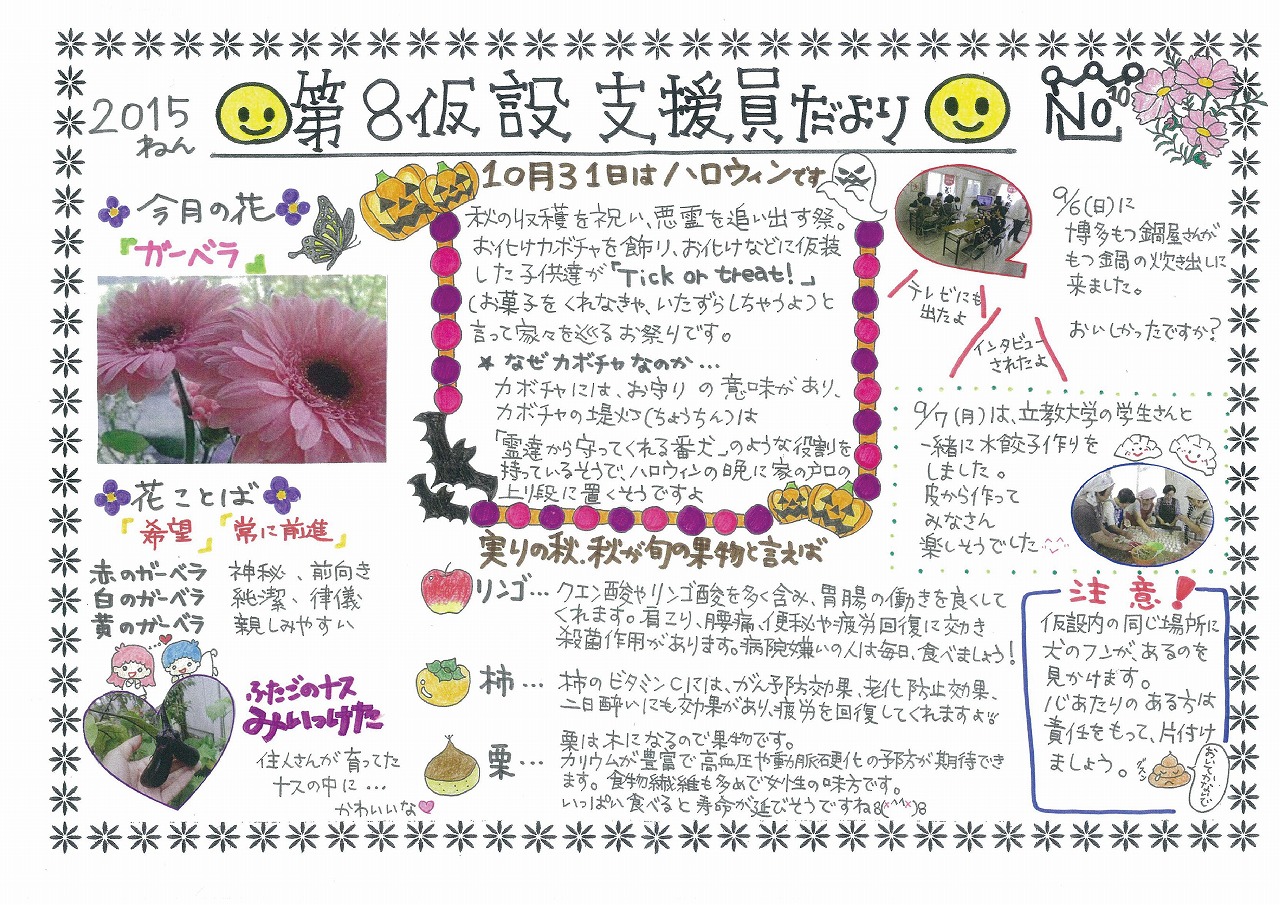 2015
ねん
第8仮設 支援員だより
No
10
今月の花
『ガーベラ』
花ことば
「希望」「常に前進」
赤のガーベラ 神秘、前向き
白のガーベラ 純潔、律儀
黄のガーベラ 親しみやすい
ふたごのナス
みぃいつけた
住人さんが育てた
ナスの中に…
かわいいな
10月31日はハロウィンです
秋の収穫を祝い、悪霊を追い出す祭。
お化けカボチャを飾り、お化けなどに仮装
した子供達が「Tick or treat!」
(お菓子をくれなきゃ、いたずらしちゃうよ)と
言って家々を巡るお祭りです。
★なぜカボチャなのか…
カボチャには、お守りの意味があり、
カボチャの堤灯(ちょうちん)は
「霊達から守ってくれる番犬」のような役割を
持っているそうで、ハロウィンの晩に家の戸口の
上り段に置くそうですよ
実りの秋.秋が旬の果物と言えば
リンゴ… クエン酸やリンゴ酸を多く含み、胃腸の働きを良くして
くれます。肩こり、腰痛、便秘や疲労回復に効き
殺菌作用があります。病院嫌いの人は毎日、食べましょう!
柿… 柿のビタミンCには、がん予防効果、老化防止効果、
二日酔いにも効果があり、疲労を回復してくれますよ!!
栗… 栗は木になるので果物です。
カリウムが豊富で高血圧や動脈硬化の予防が期待でき
ます。食物繊維も多めで女性の味方です。
いっぱい食べると寿命が延びそうですね8(*^^*)8
テレビにも
出たよ
インタビュー
されたよ
9/6(日)に
博多もつ鍋屋さんが
もつ鍋の炊き出しに
来ました。
おいしかったですか?
9/7(月)は、立教大学の学生さんと
一緒に水餃子作りを
しました。
皮から作って
みなさん
楽しそうでした
注意!
仮設内の同じ場所に
犬のフンが、あるのを
見かけます。
心あたりのある方は
責任をもって、片付け
ましょう。
グスン
おいてかないで